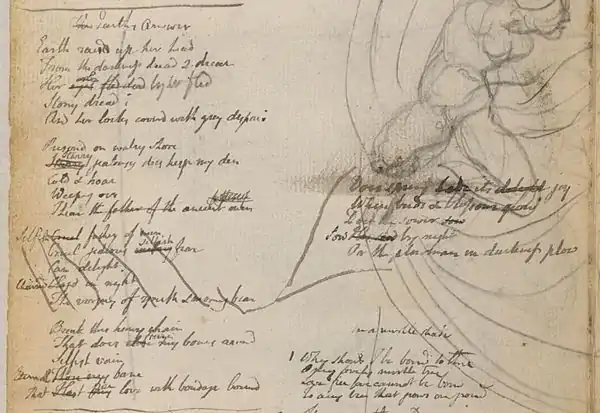 The Earths Answer
Earth raisd up her head
From the darkness dread & drear
Her eyes fled dead light fled
Stony dread
And her locks coverd with grey despair
Prisond on watry shore
Starry Jealousy does keep my den
Cold & hoar
Weeping oer
I hear the father of the ancient men
Selfish Cruel father of men
Cruel jealous selfish fear
Can delight
Chaind in night
The virgins of youth & morning bear
Does spring hide its delight joy
When buds & blossoms grow
Does the sower sow
Sow by night
Or the plowman in darkness plow
Break this heavy chain
That does my bones around
Selfish vain
Eternal bane
That love with bondage bound
in a mirtle shade
1 Why should I be bound to thee
O my lovely mirtle tree
Love free love cannot be bound
To any tree that grows on ground